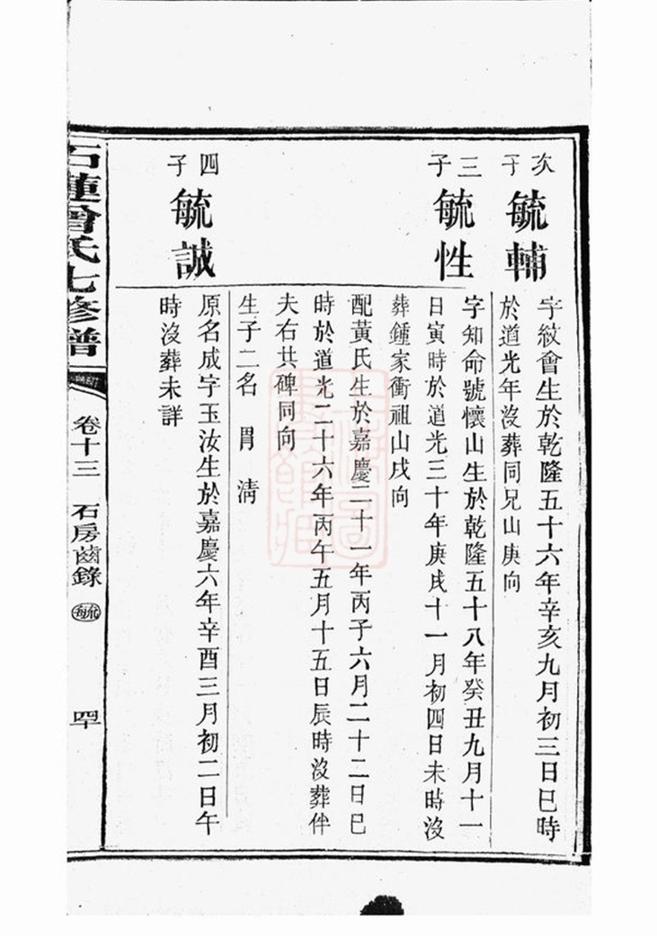 次子
毓輔
字紋會生於乾隆五十六年辛亥九月初三日巳時
於道光年沒葬同兄山庚向
三子
毓性
字知命號懷山生於乾隆五十八年癸丑九月十一
日寅時於道光三十年庚戌十一月初四日未時沒
葬鍾家衝祖山戌向
配黃氏生於嘉慶二十一年丙子六月二十二日巳
時於道光二十六年丙午五月十五日辰時沒葬伴
夫右共碑同向
生子二名 胃 淸
四子
毓誠
原名成字玉汝生於嘉慶六年辛酉三月初二日午
時沒葬未詳
石蓮曾氏七修譜
卷十三 石房齒錄 毓 四十